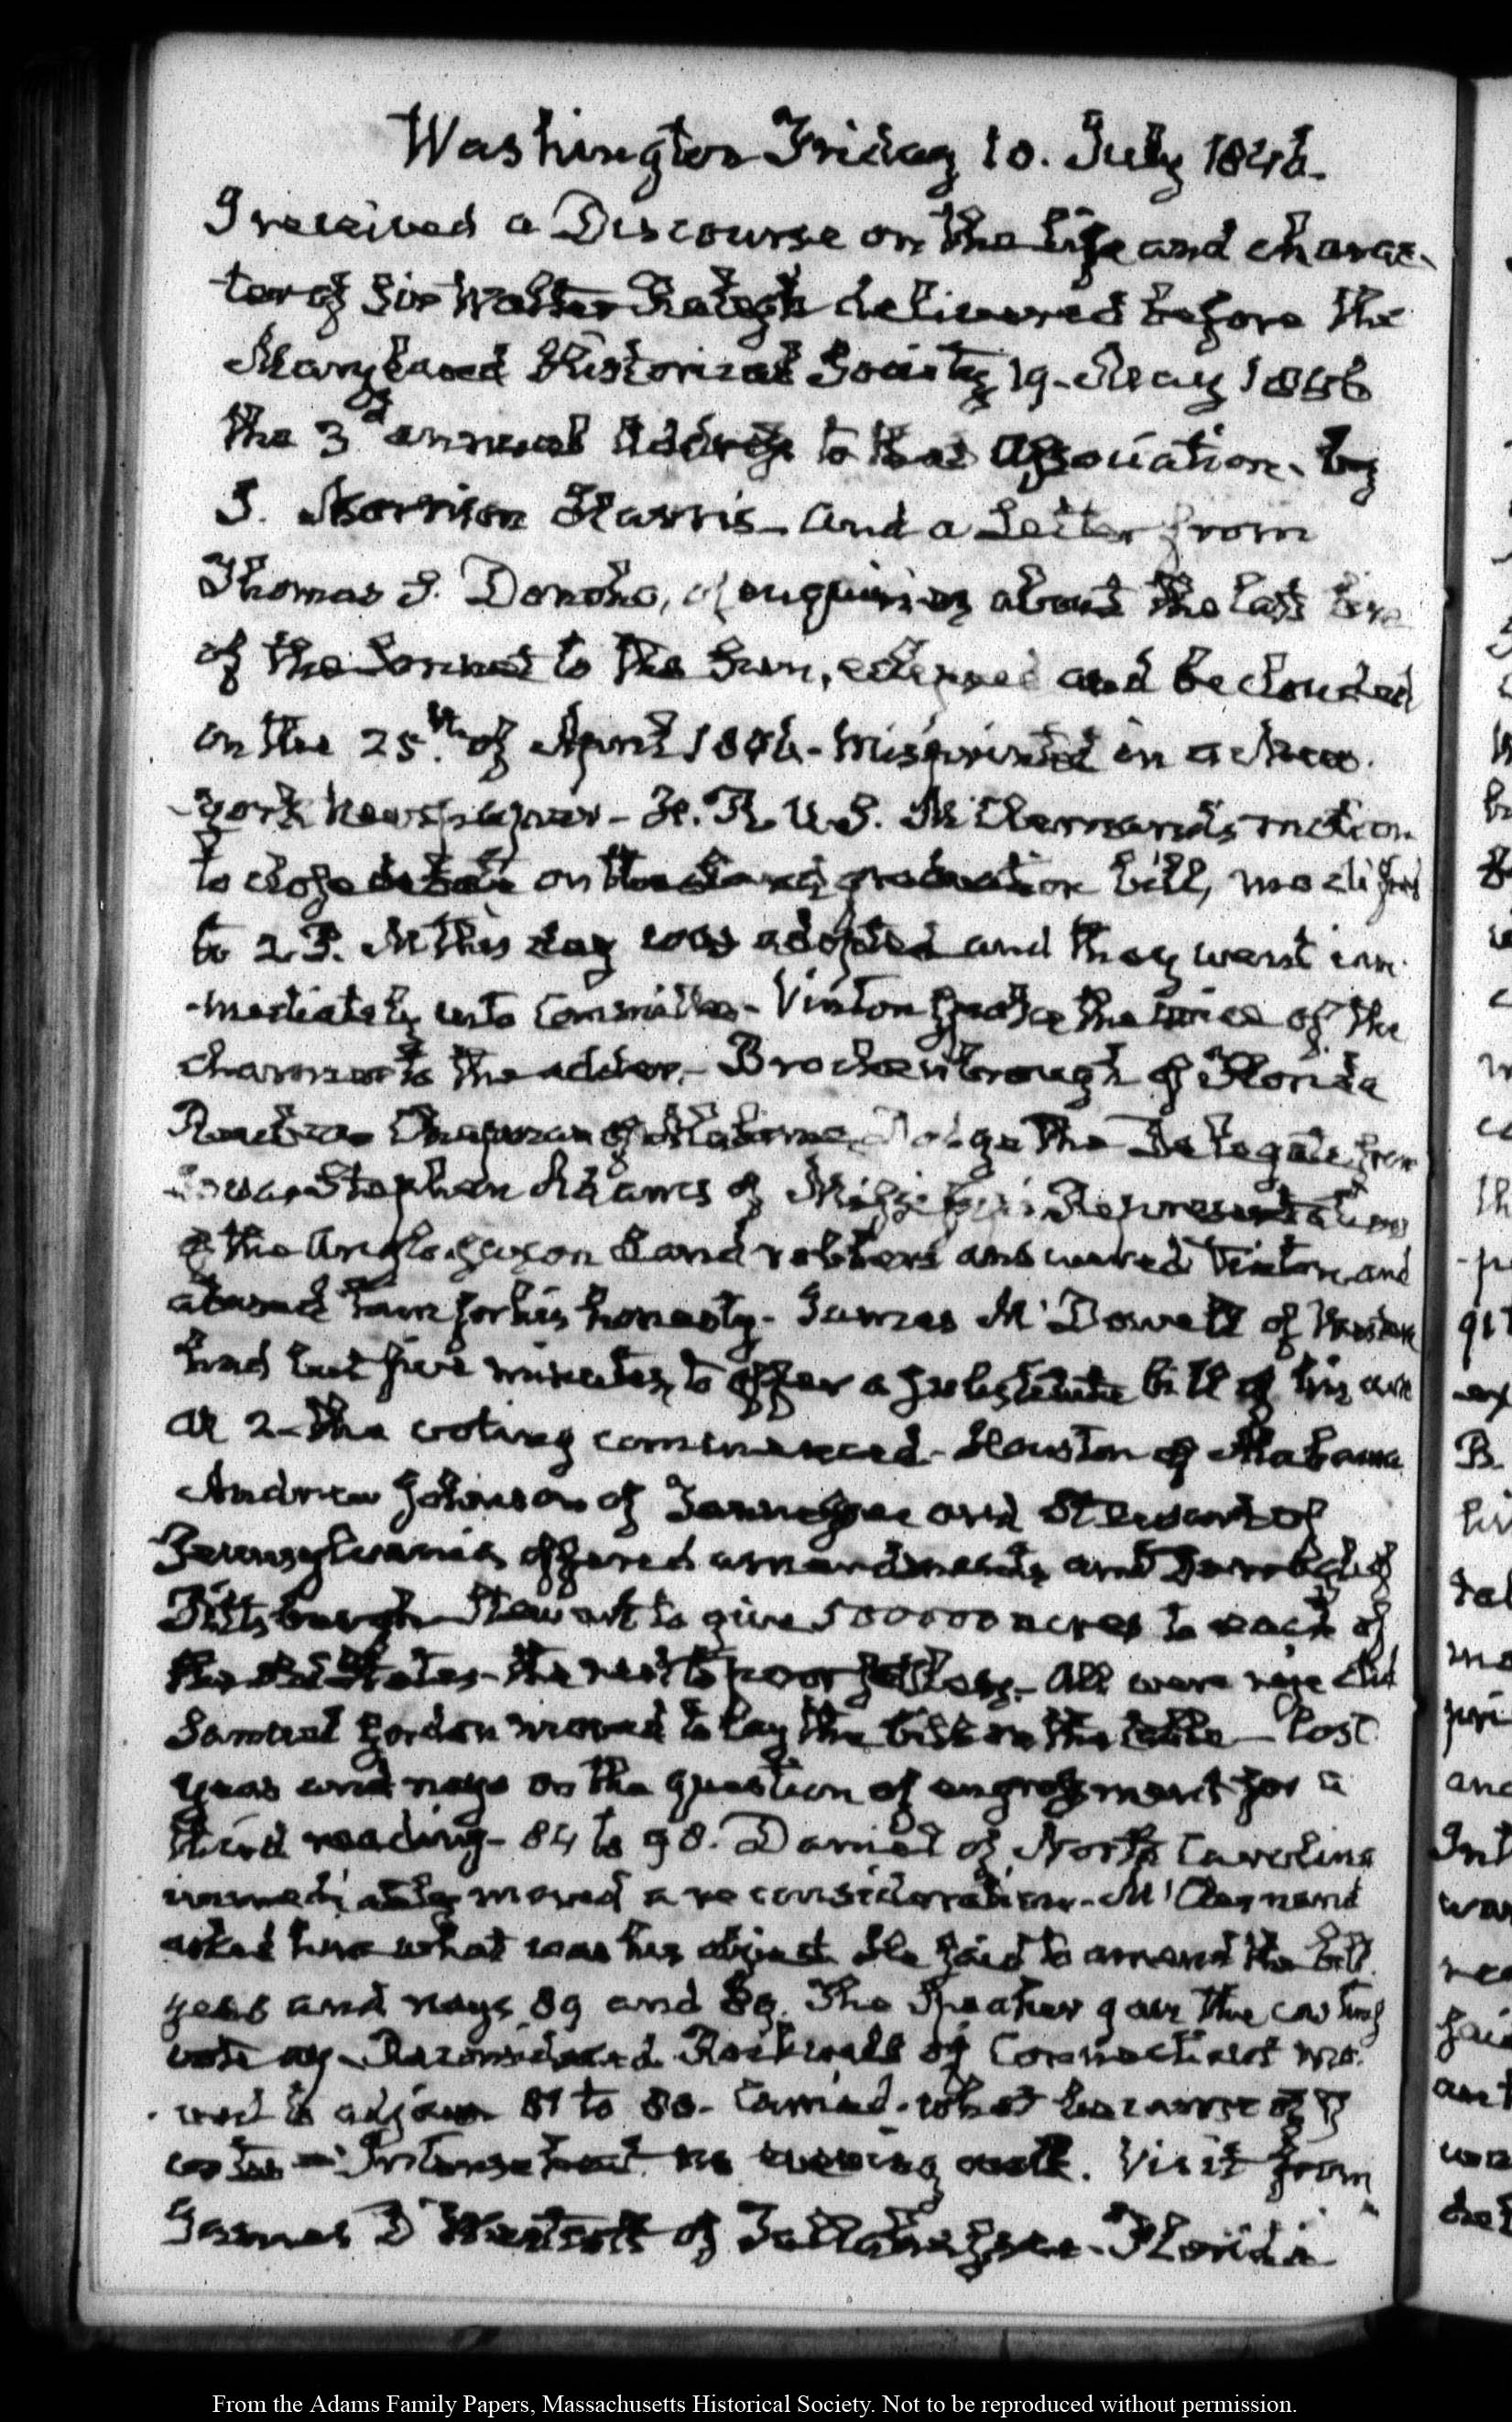 Washington Friday 10. July 1846.
I received a Discourse on the life and charac-
ter of Sir Walter Ralegh delivered before the
Maryland Historical Society 19. May 1846
the 3d annual Address to that Association. by
J. Morrison Harris. and a Letter from
Thomas S. Donoho, enquiring about the last line
of the Sonnet to the Sun, eclipsed and beclouded
on the 25th. of April 1846. misprinted in a New-
york Newspaper. H. R. U. S. McClernand's motion
to close debate on the land graduation bill, modified
to 2 P. M this day was adopted and they went im-
-mediately into Committee. Vinton spoke the voice of the
charmer to the adder. Brockenbrough of Florida
Reuben Chapman of Alabama, Dodge the Delegate from
Iowa, Stephen Adams of Mississippi, Representatives
of the Anglo-Saxon Land robbers answered Vinton and
abused him for his honesty. James McDowell of Virginia
had but five minutes, to offer a substitute bill of his own
At 2. the voting commenced. Houston of Alabama
Andrew Johnson of Tennessee and Stewart of
Pennsylvania offered amendments and of
Pittsburgh Stewart to give 500000 acres to each of
the old States. the rest to poor settlers. All were rejected
Samuel Gordon moved to lay the bill on the table. lost
yeas and nays on the question of engrossment for a
third reading. 84 to 98. Daniel of North Carolina
immediately moved a reconsideration. McClernand
asked him what was his object. He said to amend the bill.
yeas and nays 89 and 89. The Speaker gave the casting
vote ay. Reconsidered. Rockwell of Connecticut mo-
ved to adjourn 81 to 80. Carried. what became of
Intense heat. no evening walk. Visit from
James D Westcott of Tallahassee. Florida
From the Adams Family Papers, Massachusetts Historical Society. Not to be reproduced without permission.